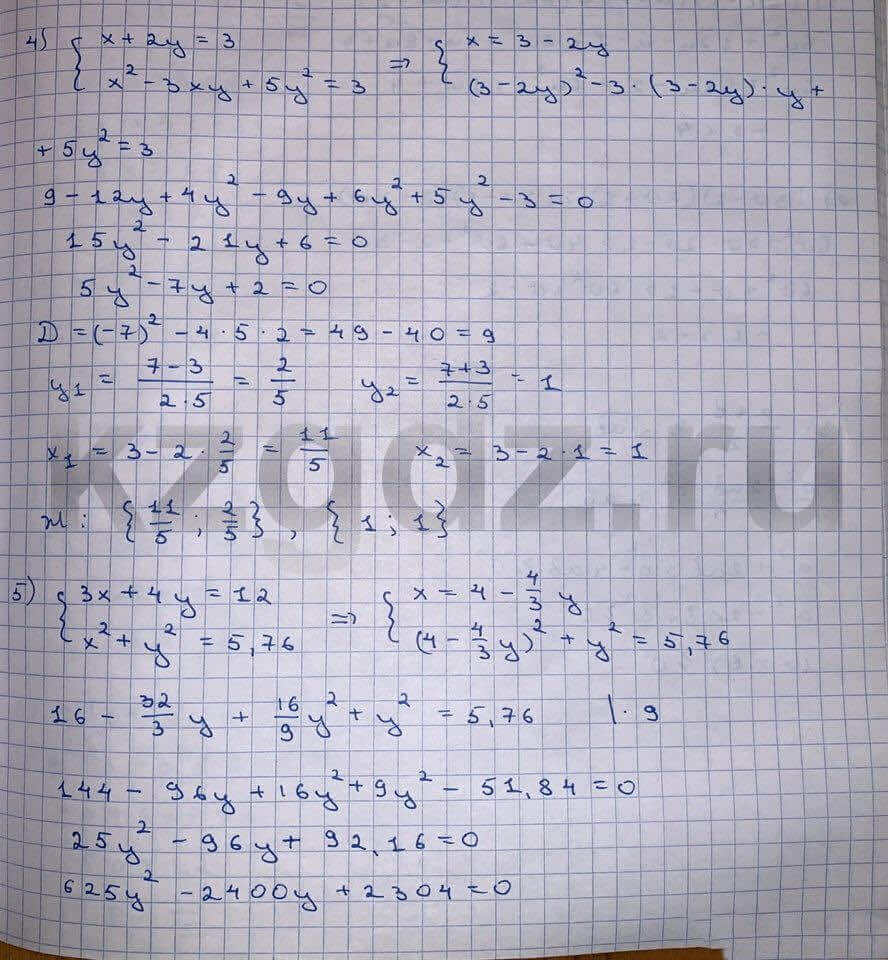 4) { x + 2y = 3 ⇒ { x = 3 - 2y
x² - 3xy + 5y² = 3 (3 - 2y)² - 3 · (3 - 2y) · y +
+ 5y² = 3
9 - 12y + 4y² - 9y + 6y² + 5y² - 3 = 0
15y² - 21y + 6 = 0
5y² - 7y + 2 = 0
D = (-7)² - 4 · 5 · 2 = 49 - 40 = 9
y₁ = (7 - 3)/(2 · 5) = 2/5 y₂ = (7 + 3)/(2 · 5) = 1
x₁ = 3 - 2 · 2/5 = 11/5 x₂ = 3 - 2 · 1 = 1
: {11/5 ; 2/5} , {1 ; 1}
kzgdz.ru
5) { 3x + 4y = 12 ⇒ { x = 4 - 4/3 y
x² + y² = 5,76 (4 - 4/3 y)² + y² = 5,76
16 - 32/3 y + 16/9 y² + y² = 5,76 | · 9
144 - 96y + 16y² + 9y² - 51,84 = 0
25y² - 96y + 92,16 = 0
625y² - 2400y + 2304 = 0